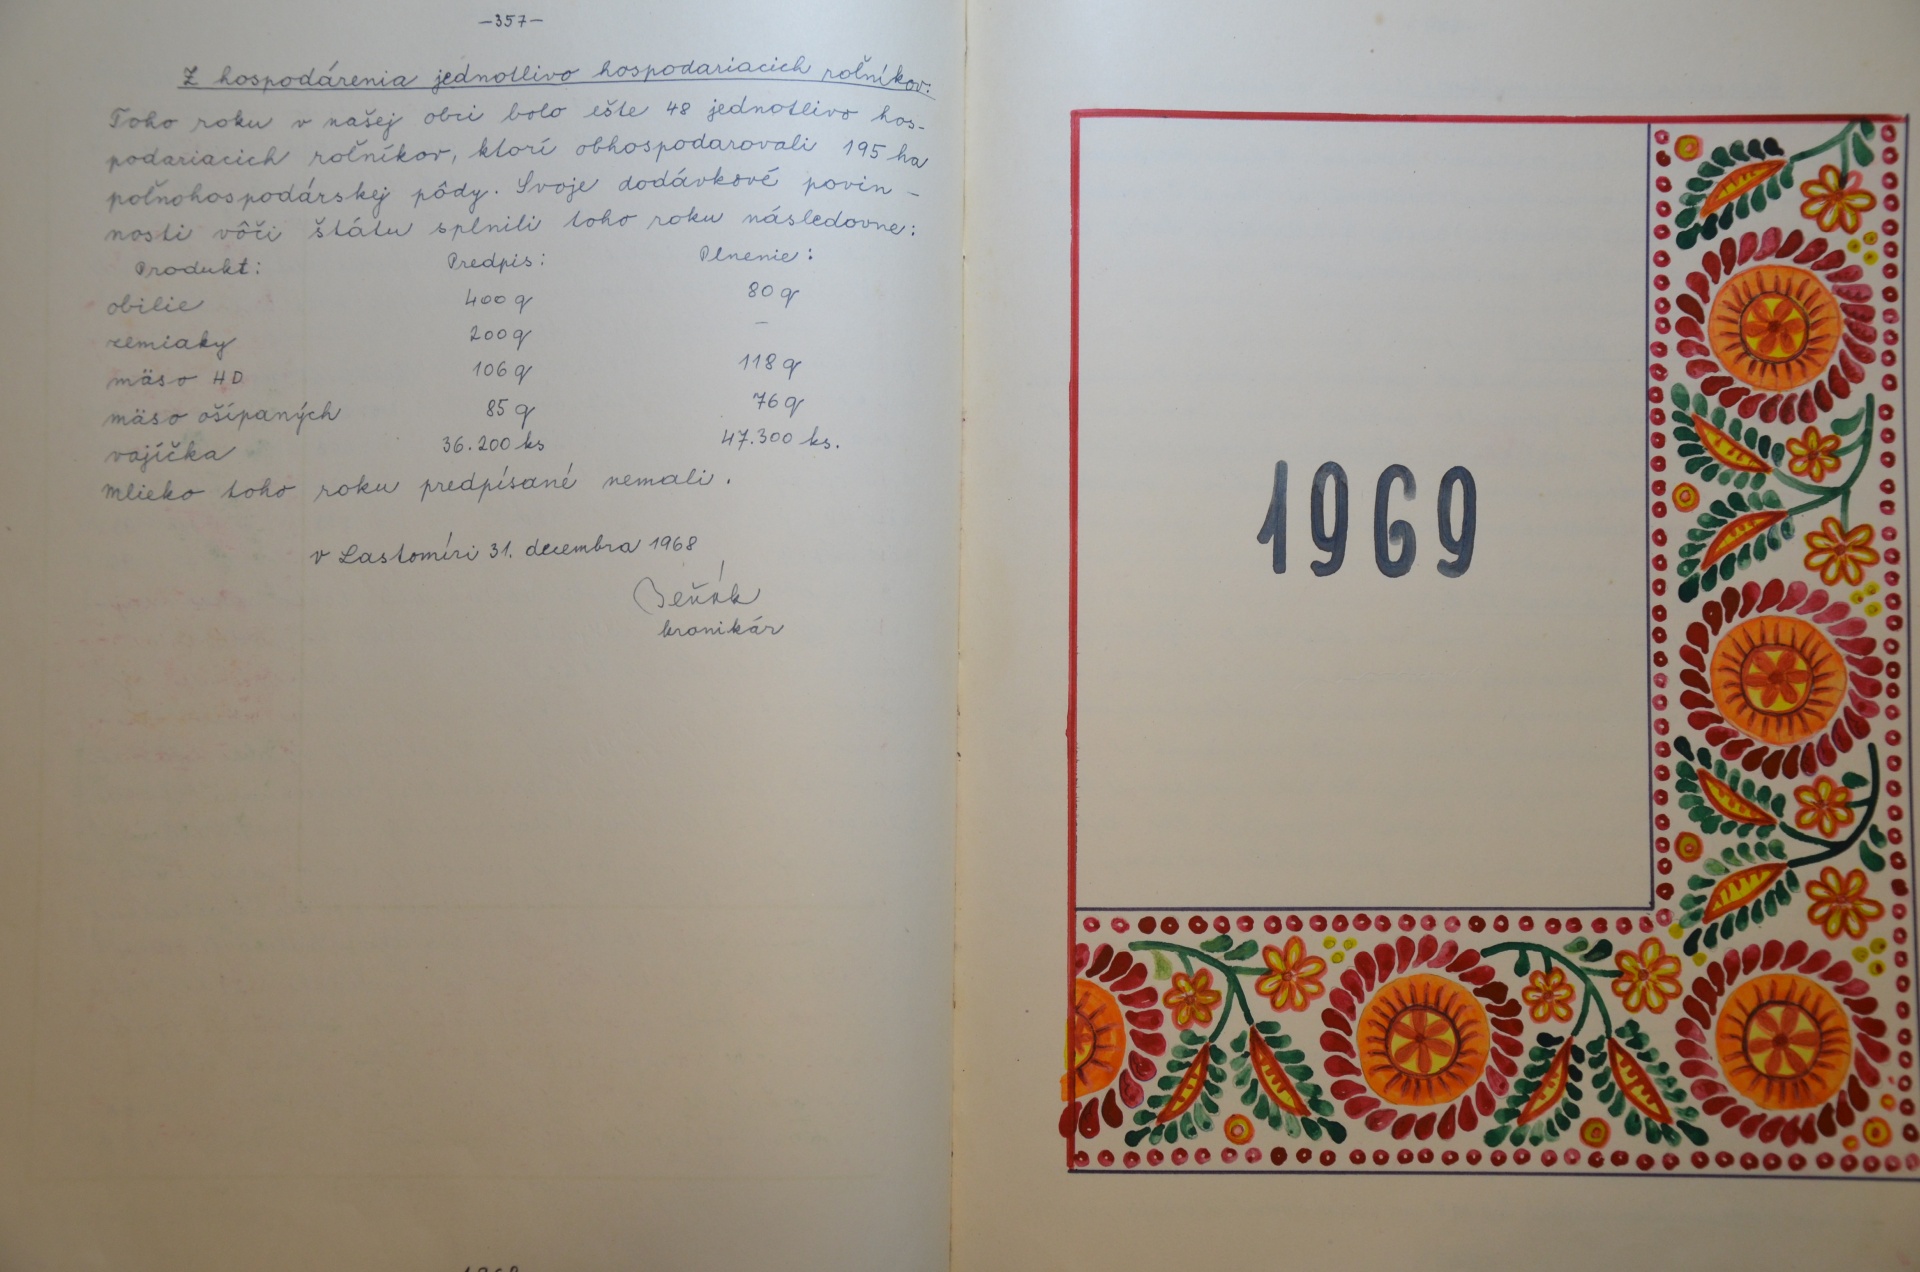 –357–
Z hospodárenia jednotlivo hospodariacich roľníkov.
Toho roku v našej obci bolo ešte 48 jednotlivo hos-
podariacich roľníkov, ktorí obhospodarovali 195 ha
poľnohospodárskej pôdy. Svoje dodávkové povin-
nosti vôči štátu splnili toho roku následovne:
Produkt: Predpis: Plnenie:
obilie 400 q 80 q
zemiaky 200 q –
mäso HD 106 q 118 q
mäso ošípaných 85 q 76 q
vajíčka 36.200 ks 47.300 ks.
Mlieko toho roku predpísané nemali.
v Lastomíri 31. decembra 1968
kronikár
1969